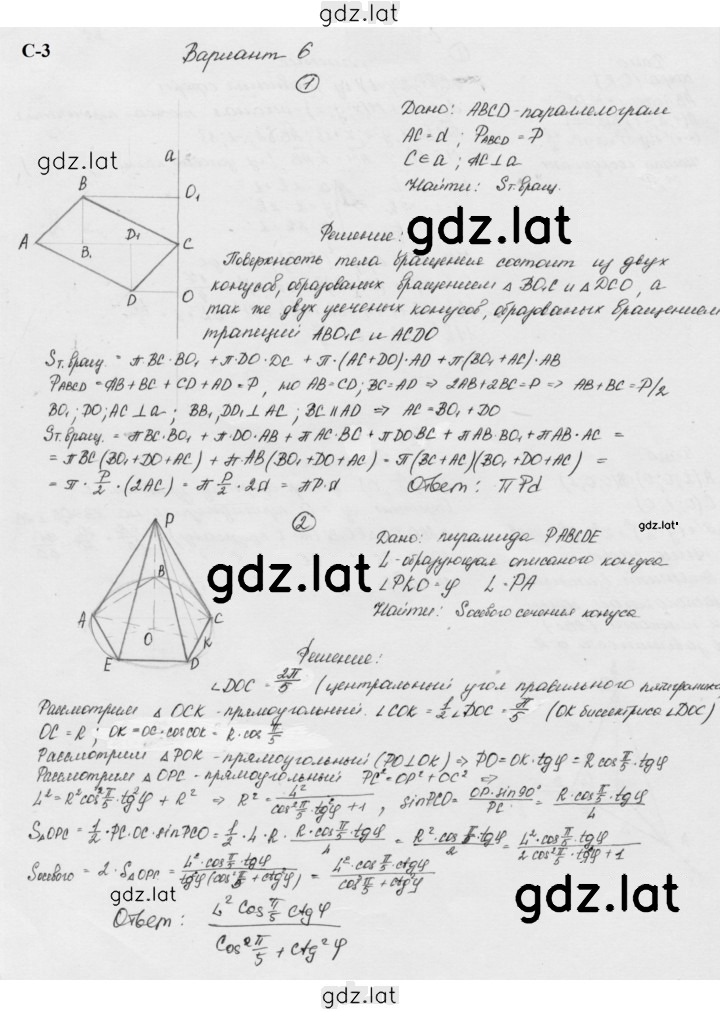 gdz.lat
С-3
Вариант 6
1
Дано: ABCD - параллелограм
AC = d ; P_ABCD = P
C ∈ a ; AC ⊥ a
Найти: Sт.вращ.
gdz.lat
gdz.lat
a
B
O₁
A
B₁
D₁
C
D
O
Решение:
Поверхность тела вращения состоит из двух
конусов, образованых вращением △ BO₁C и △DCO, а
так же двух усеченых конусов, образованых вращением
трапеций ABO₁C и ACDO
Sт.вращ. = π·BC·BO₁ + π·DO·DC + π·(AC+DO)·AD + π(BO₁+AC)·AB
P_ABCD = AB + BC + CD + AD = P, но AB = CD; BC = AD ⇒ 2AB + 2BC = P ⇒ AB + BC = P/2
BO₁; DO; AC ⊥ a ; BB₁, DD₁ ⊥ AC ; BC ∥ AD ⇒ AC = BO₁ + DO
Sт.вращ. = πBC·BO₁ + π·DO·AB + πAC·BC + πDO·BC + πAB·BO₁ + πAB·AC =
= πBC(BO₁+DO+AC) + π·AB(BO₁+DO+AC) = π(BC+AC)(BO₁+DO+AC) =
= π · P/2 · (2AC) = π P/2 · 2d = πP·d Ответ: πPd
2
gdz.lat
Дано: пирамида PABCDE
L - образующая описаного конуса
∠PKO = φ L = PA
Найти: Sосевого сечения конуса
gdz.lat
P
B
A
C
O
K
E
D
Решение:
∠DOC = 2π/5 (центральный угол правильного пятиугольника
Рассмотрим △ OCK - прямоугольный. ∠COK = 1/2 ∠DOC = π/5 (OK бисектриса ∠DOC)
OC = R ; OK = OC·cos COK = R·cos π/5
Рассмотрим △ POK - прямоугольный (PO ⊥ OK) ⇒ PO = OK·tgφ = R cos π/5 · tgφ
Рассмотрим △ OPC - прямоугольный PC² = OP² + OC² ⇒
L² = R² cos² π/5 · tg²φ + R² ⇒ R² = L²/(cos² π/5 · tg²φ + 1) , sin PCO = OP·sin90°/PC = R·cos π/5 · tgφ/L
S△OPC = 1/2 · PC·OC·sin PCO = 1/2 · L·R · R·cos π/5 · tgφ/L = R²·cos π/5 · tgφ/2 = L²·cos π/5 · tgφ/2 cos² π/5 · tg²φ + 1
Sосевого = 2·S△OPC = L²·cos π/5 · tgφ/tg²φ(cos² π/5 + ctg²φ) = L²·cos π/5 · ctgφ/cos² π/5 + ctg²φ
Ответ: L² cos π/5 ctgφ/cos² π/5 + ctg²φ
gdz.lat
gdz.lat
gdz.lat